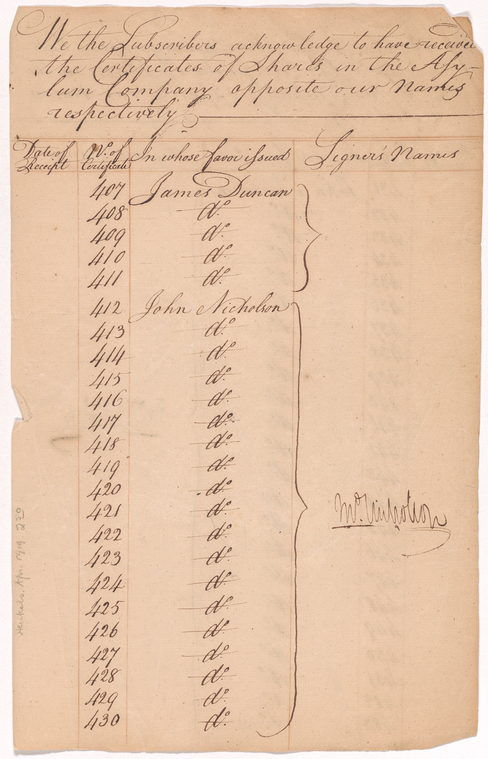 We the Subscribers acknowledge to have receive
the Certificates of Shares in the Asy-
lum Company opposite our Names
respectively
Date of Receipt No. of Certificate In whose favor issued Signer's Names
407 James Duncan
408 do.
409 do.
410 do.
411 do.
412 John Nicholson
413 do.
414 do.
415 do.
416 do.
417 do.
418 do.
419 do.
420 do.
421 do. Nicholson
422 do.
423 do.
424 do.
425 do.
426 do.
427 do.
428 do.
429 do.
430 do.
Henkels. Apr. 1919 230